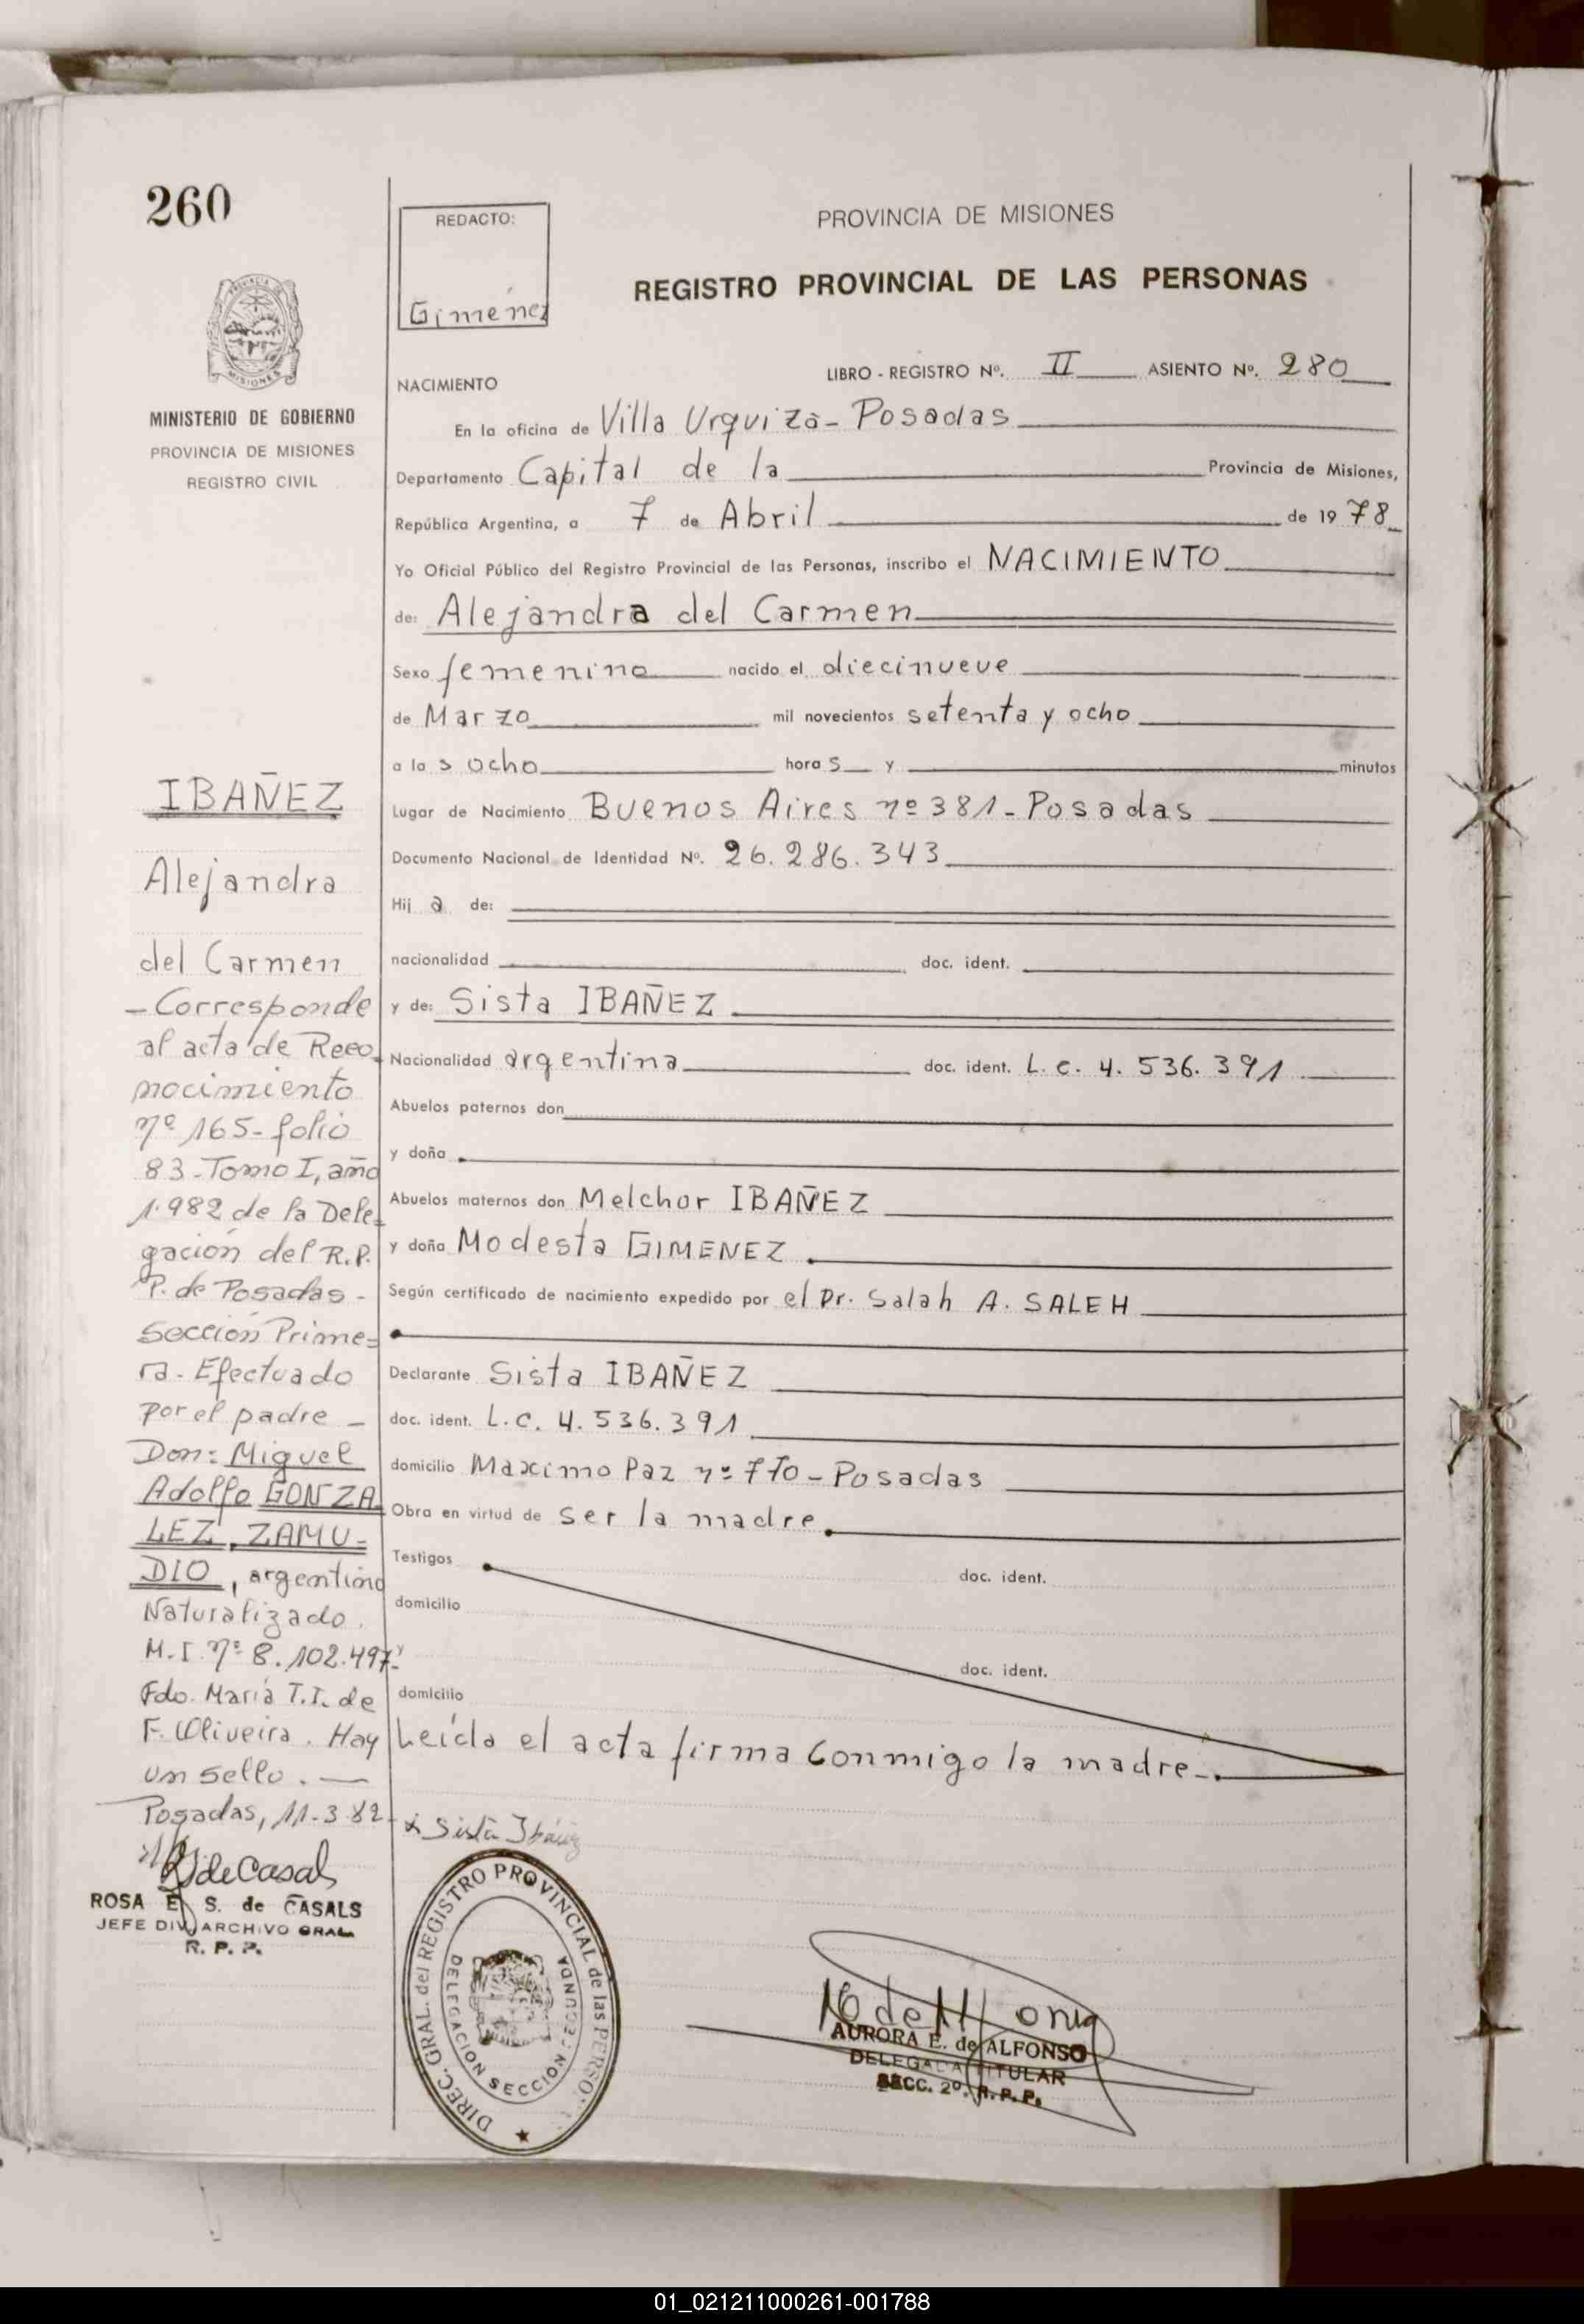 260
MINISTERIO DE GOBIERNO
PROVINCIA DE MISIONES
REGISTRO CIVIL
IBAÑEZ
Alejandra
del Carmen
- Corresponde
al acta de Reco_
nocimiento
nº 165- folio
83-Tomo I, año
1.982 de la Dele_
gación del R.P.
P. de Posadas -
Sección Prime=
ra. Efectuado
por el padre -
Don: Miguel
Adolfo GONZA
LEZ, ZAMU-
DIO, argentino
Naturalizado.
M.I. nº 8.102.497-
Fdo. María T.I. de
F. Oliveira. Hay
un sello. —
Posadas, 11-3-82
ROSA E. S. de CASALS
JEFE DIV. ARCHIVO GRAL
R. P. P.
REDACTO:
Giménez
PROVINCIA DE MISIONES
REGISTRO PROVINCIAL DE LAS PERSONAS
NACIMIENTO
LIBRO - REGISTRO Nº. II ASIENTO Nº. 280
En la oficina de Villa Urquiza- Posadas
Departamento Capital de la Provincia de Misiones,
República Argentina, a 7 de Abril de 1978
Yo Oficial Público del Registro Provincial de las Personas, inscribo el NACIMIENTO
de: Alejandra del Carmen
Sexo femenino nacido el diecinueve
de Marzo mil novecientos setenta y ocho
a las ocho horas y minutos
Lugar de Nacimiento Buenos Aires nº 381- Posadas
Documento Nacional de Identidad Nº. 26.286.343
Hija de:
nacionalidad doc. ident.
y de: Sista IBAÑEZ
Nacionalidad argentina doc. ident. L.C. 4.536.391
Abuelos paternos don
y doña
Abuelos maternos don Melchor IBAÑEZ
y doña Modesta GIMENEZ
Según certificado de nacimiento expedido por el Dr. Salah A. SALEH
Declarante Sista IBAÑEZ
doc. ident. L.C. 4.536.391
domicilio Maximo Paz nº 770 - Posadas
Obra en virtud de ser la madre.
Testigos doc. ident.
domicilio
doc. ident.
domicilio
Leída el acta firma conmigo la madre-.
Sista Ibáñez
DIREC. GRAL. del REGISTRO PROVINCIAL de las PERSO
DELEGACION SECCION SEGUNDA
AURORA E. de ALFONSO
DELEGADA TITULAR
SECC. 2º. R.P.P.
01_021211000261-001788